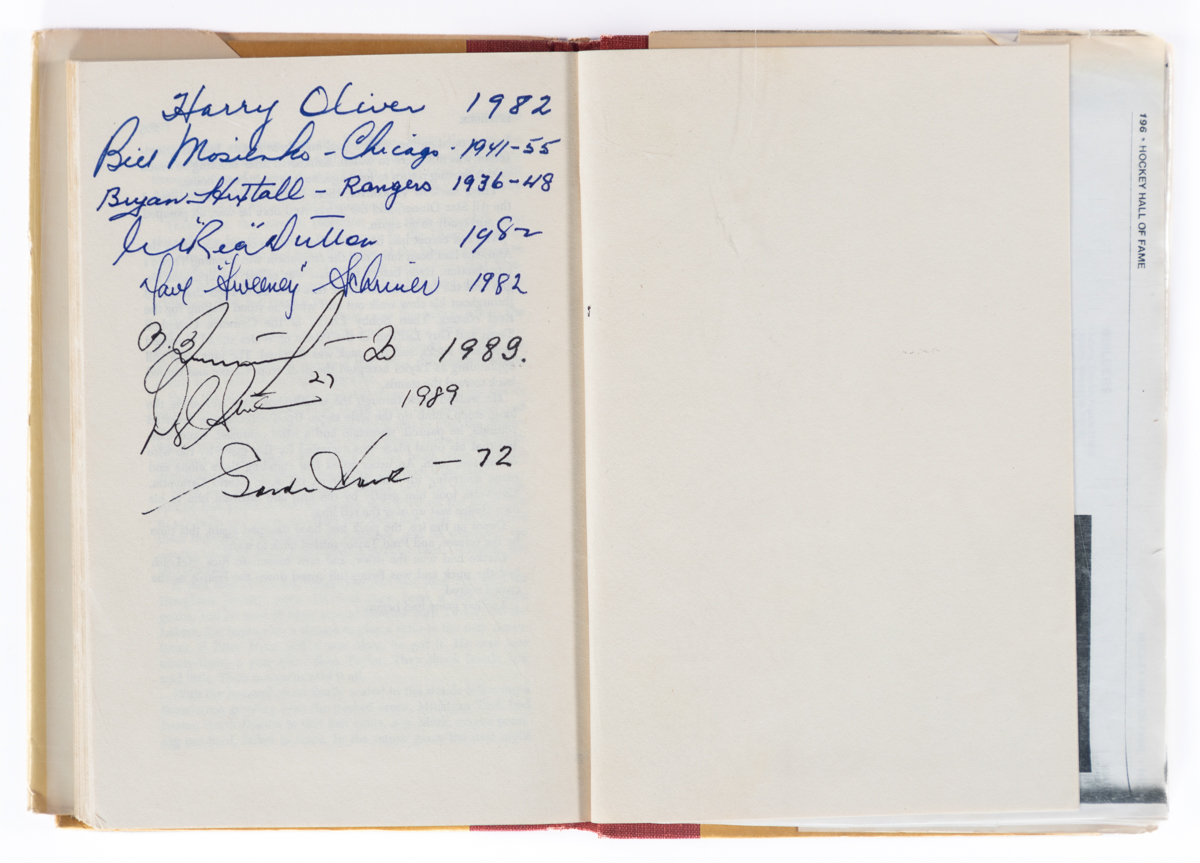 Harry Oliver 1982
Bill Mosienko - Chicago - 1941-55
Bryan Hextall - Rangers 1936-48
"Red" Dutton 1982
Dave "Sweeney" Schriner 1982
1989.
27 1989
Gordie Howe - 72
196 • HOCKEY HALL OF FAME